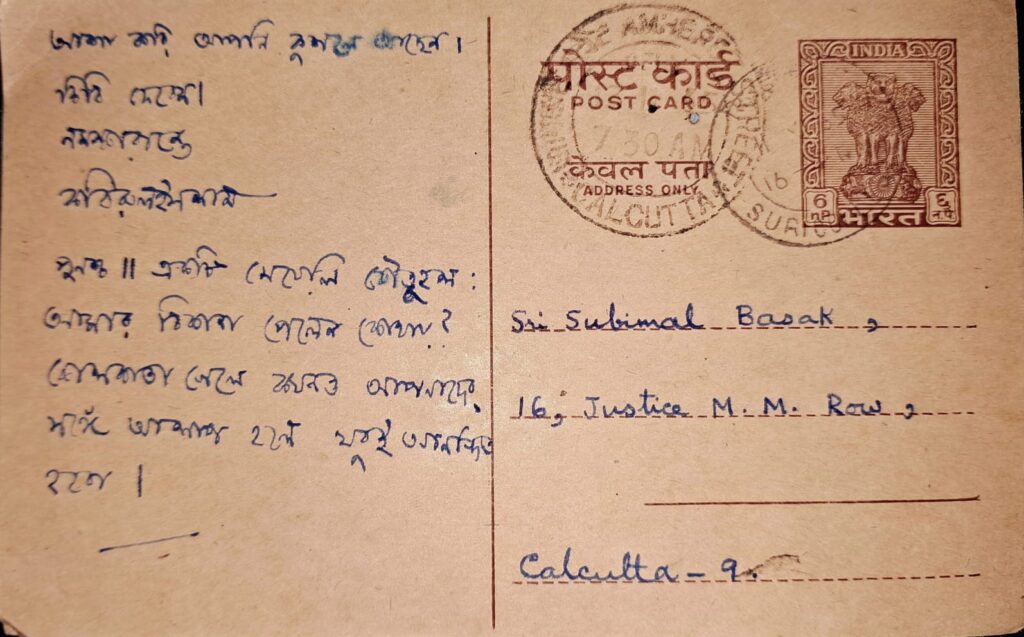 আশা করি আপনি কুশলে আছেন।
চিঠি দেবেন।
নমস্কারান্তে
কবিরুল ইসলাম
পুনশ্চ॥ একটি মেয়েলি কৌতূহল:
আমার ঠিকানা পেলেন কোথায়?
কোলকাতা গেলে কখনও আপনাদের
সঙ্গে আলাপ হলে খুবই আনন্দিত
হবো।
पोस्ट कार्ड
POST CARD
7 30 AM
केवल पता
ADDRESS ONLY
CALCUTTA
INDIA
6 nP
भारत
६ न.पै.
16
SURI
Sri Subimal Basak,
16, Justice M. M. Row,
Calcutta - 9.